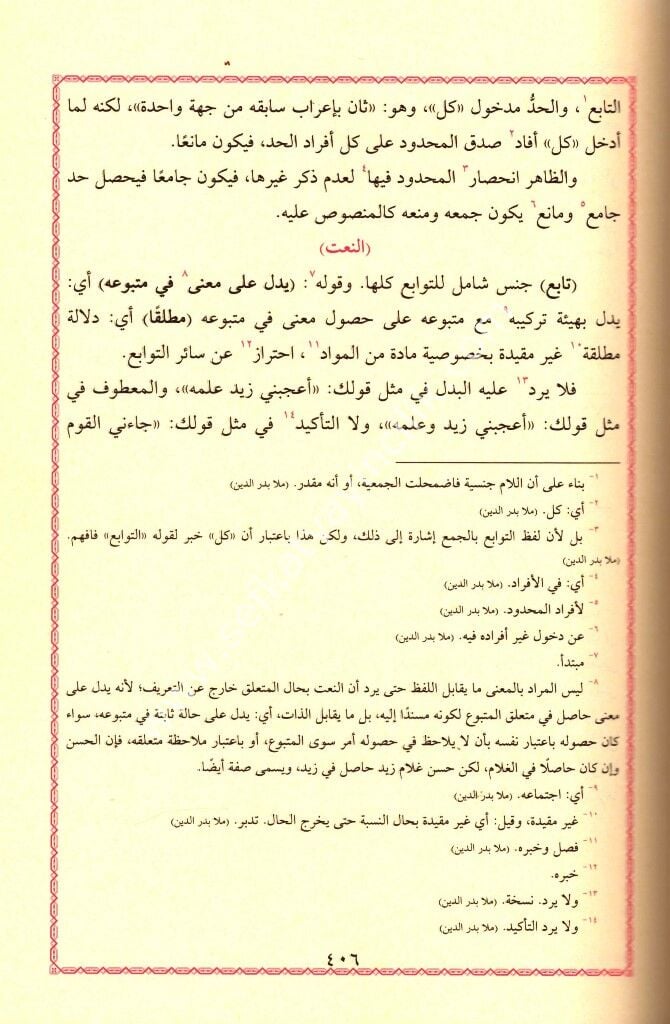 التابع١، والحدُّ مدخول «كل»، وهو: «ثان بإعراب سابقه من جهة واحدة»، لكنه لما
أدخل «كل» أفاد٢ صدق المحدود على كل أفراد الحد، فيكون مانعًا.
والظاهر انحصار٣ المحدود فيها٤ لعدم ذكر غيرها، فيكون جامعًا فيحصل حد
جامع٥ ومانع٦ يكون جمعه ومنعه كالمنصوص عليه.
(النعت)
(تابع) جنس شامل للتوابع كلها. وقوله٧: (يدل على معنى٨ في متبوعه) أي:
يدل بهيئة تركيبه٩ مع متبوعه على حصول معنى في متبوعه (مطلقًا) أي: دلالة
مطلقة١٠ غير مقيدة بخصوصية مادة من المواد١١، احتراز١٢ عن سائر التوابع.
فلا يرد١٣ عليه البدل في مثل قولك: «أعجبني زيد علمه»، والمعطوف في
مثل قولك: «أعجبني زيد وعلمه»، ولا التأكيد١٤ في مثل قولك: «جاءني القوم
١- بناء على أن اللام جنسية فاضمحلت الجمعية، أو أنه مقدر. (ملا بدر الدين)
٢- أي: كل. (ملا بدر الدين)
٣- بل لأن لفظ التوابع بالجمع إشارة إلى ذلك، ولكن هذا باعتبار أن «كل» خبر لقوله «التوابع» فافهم.
(ملا بدر الدين)
٤- أي: في الأفراد. (ملا بدر الدين)
٥- لأفراد المحدود. (ملا بدر الدين)
٦- عن دخول غير أفراده فيه. (ملا بدر الدين)
٧- مبتدأ.
٨- ليس المراد بالمعنى ما يقابل اللفظ حتى يرد أن النعت بحال المتعلق خارج عن التعريف؛ لأنه يدل على
معنى حاصل في متعلق المتبوع لكونه مسندًا إليه، بل ما يقابل الذات، أي: يدل على حالة ثابتة في متبوعه، سواء
كان حصوله باعتبار نفسه بأن لا يلاحظ في حصوله أمر سوى المتبوع، أو باعتبار ملاحظة متعلقه، فإن الحسن
وإن كان حاصلًا في الغلام، لكن حسن غلام زيد حاصل في زيد، ويسمى صفة أيضًا.
٩- أي: اجتماعه. (ملا بدر الدين)
١٠- غير مقيدة، وقيل: أي غير مقيدة بحال النسبة حتى يخرج الحال. تدبر. (ملا بدر الدين)
١١- فصل وخبره. (ملا بدر الدين)
١٢- خبره.
١٣- ولا يرد. نسخة. (ملا بدر الدين)
١٤- ولا يرد التأكيد. (ملا بدر الدين)
٤٠٦